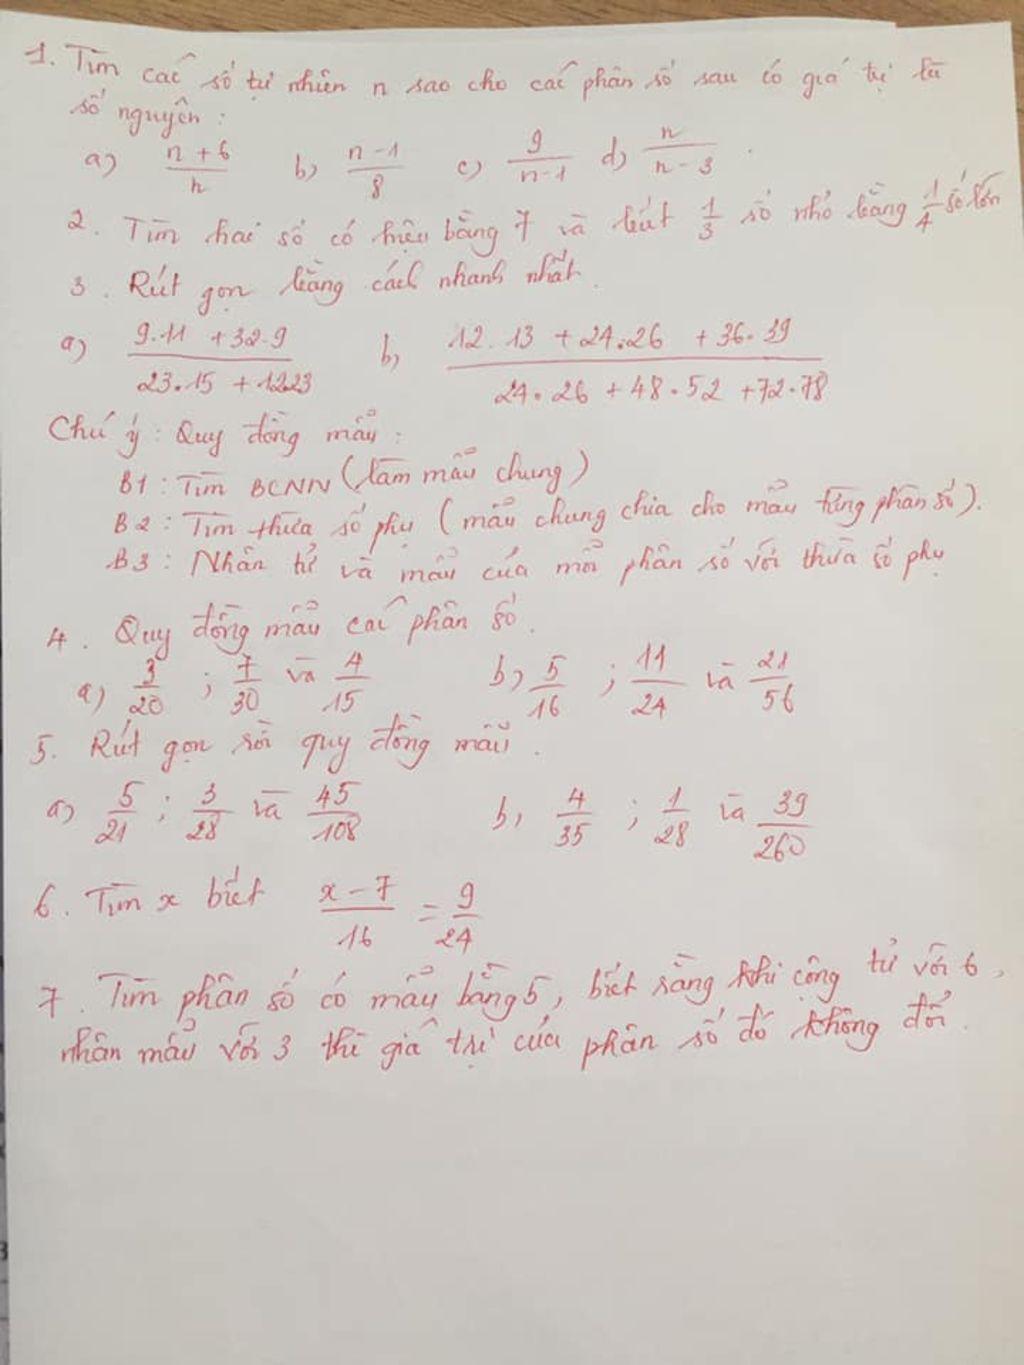 1. Tìm các số tự nhiên n sao cho các phân số sau có giá trị là
số nguyên :
a) n + 6 / n b) n - 1 / 8 c) 9 / n - 1 d) n / n - 3 .
2. Tìm hai số có hiệu bằng 7 và biết 1/3 số nhỏ bằng 1/4 số lớn
3. Rút gọn bằng cách nhanh nhất.
a) 9.11 + 32.9 / 23.15 + 12.23 b, 12.13 + 24.26 + 36.39 / 24.26 + 48.52 + 72.78
Chú ý : Quy đồng mẫu :
B1 : Tìm BCNN (làm mẫu chung)
B2 : Tìm thừa số phụ (mẫu chung chia cho mẫu từng phân số).
B3 : Nhân tử và mẫu của mỗi phân số với thừa số phụ
4. Quy đồng mẫu các phân số.
a) 3/20 ; 7/30 và 4/15 b) 5/16 ; 11/24 và 21/56
5. Rút gọn rồi quy đồng mẫu .
a) 5/21 ; 3/28 và 45/108 b, 4/35 ; 1/28 và 39/260
6. Tìm x biết x - 7 / 16 = 9/24
7. Tìm phân số có mẫu bằng 5, biết rằng khi cộng tử với 6,
nhân mẫu với 3 thì giá trị của phân số đó không đổi.